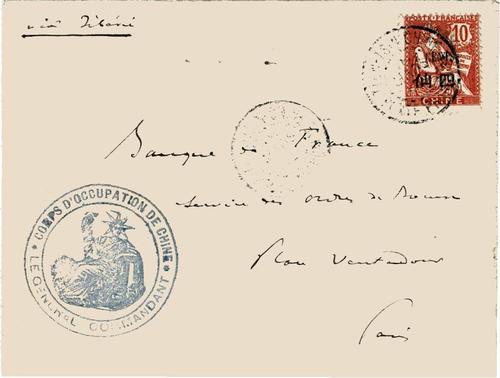 via Sibérie
POSTE FRANÇAISE
10
CHINE
Banque de France
Service des ordres de Bourse
Place Ventadour
Paris
CORPS D'OCCUPATION DE CHINE
LE GÉNÉRAL COMMANDANT